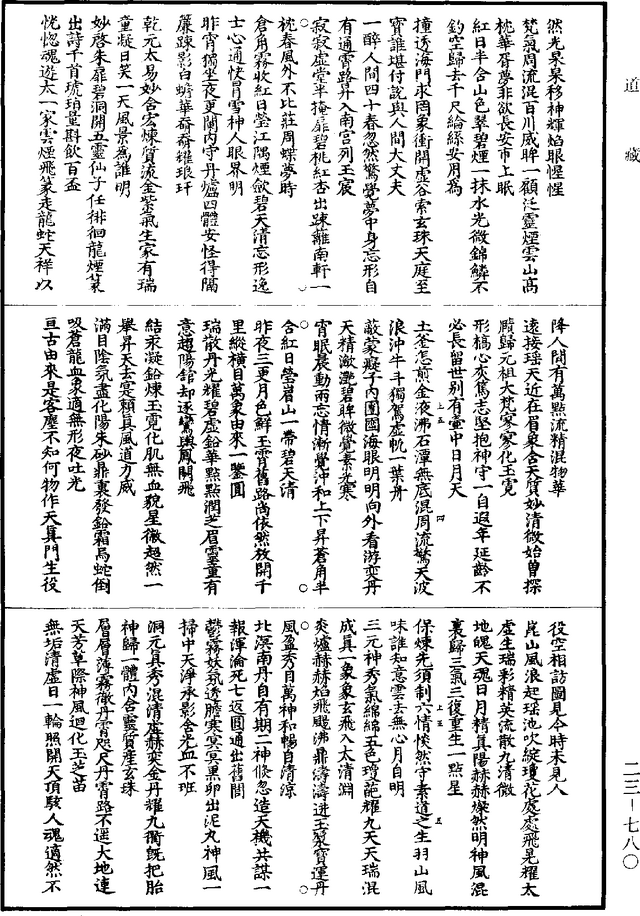 道藏
然光杲杲移神輝焰眼惺惺
梵氣周流混百川威眸一顧泛靈煙雲山高
枕華胥夢非欲長安市上眠
紅日半含山色翠碧煙一抹水光微錦鱗不
釣空歸去千尺綸絲安用為
撞透海門求罔象衝開虛谷索玄珠天庭至
寶誰堪付說與人間大丈夫
一醉人間四十春忽然驚覺夢中身忘形自
有通霄路昇入南宮列玉宸
寂寂虛堂半掩扉碧桃紅杏出疎蘺南軒一
枕春風外不比莊周蝶夢時
倉角霧收紅日瑩江隅煙歛碧天清忘形逸
士心通快冐雪神人眼界明
昨宵獨坐夜更闌內守丹爐四體安怪得隔
簾踈影白蟾華斎斎耀琅玕
乾元太易妙含宏煉質流金紫氣生家有瑞
童凝日笑一天風景為誰明
妙啓朱扉碧洞開五靈仙子任徘徊龍煙篆
出詩千首琥珀量斟飲百盃
恍惚魂遊太一家雲煙飛篆走龍蛇天祥以
降人間有萬點流精混物華
遠接瑤天近在眉衆含天質妙清微始曽探
賾歸元祖大梵寥寥化玉霓
形槁心灰篤志堅抱神守一自遐年延齡不
必長留世别有壺中日月天
土釜怎煎金液沸石潭無底混周流驚天波
浪沖牛斗獨駕虛軏一葉舟
敲蒙癡子內團圝海眼明明向外看游奕丹
天精瀲灔碧眸微覺素光寒
宵眠晨動兩忘情漸覺沖和上下昇蒼角半
含紅日瑩眉山一帶碧天清
昨夜三更月色鮮玉霄舊路尚依然放開千
里縱橫目萬象由來一鑒圓
瑞散丹光耀碧虛鉛華點點潤芝眉靈童有
意趨陽舘却逐鸞輿鳳闕飛
結汞凝鉛煉玉霓化肌無血貌星微超然一
舉昇天去寔賴真風道力威
滿目陰氛盡化陽朱砂鼎裏發鉛霜烏蛇倒
吸蒼龍血象適無形夜吐光
亘古由來是客塵不知何物作天真門生役
役空相訪圖見今時未見人
崑山風浪起瑤池吹綻瓊花處處飛晃耀太
虛生瑞彩精英流散九清微
地魄天魂日月精真陽赫赫燦然明神風混
裏歸三氣三復重生一點星
保煉先須制六情恢然守素道之生羽山風
味誰知意雲去無心月自明
三元神秀氣綿綿五色瓊葩耀九天天瑞混
成真一象象玄飛入太清淵
炎爐赫赫焰飛颷沸鼎濤濤迸玉泉寶運丹
風盈秀月萬神和暢自清凉
北溟南丹自有期二神倐忽造天機共謀一
報渾淪死七返圓通出舊闈
鬱霧妖氛透膽寒冥冥黑卯出泥丸神風一
掃中天淨承影含光血不班
洞元真秀混清虛赫奕金丹耀九衢旣把胎
神歸一體內含靈質産玄珠
層層薄霧微丹霄咫尺丹霄路不遥大地連
天芳草際神風迴化玉芝苗
無垢清虛日一輪照開天頂駭人魂適然不
上五
四
上五
五
二三—七八〇